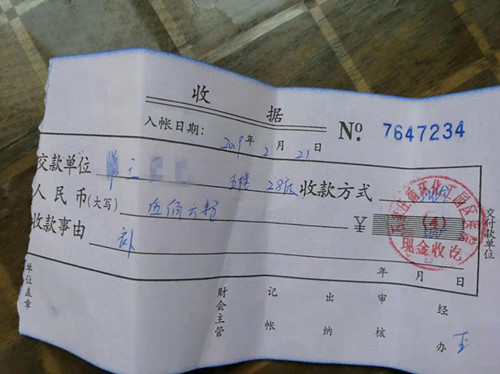 收 据
入帐日期: 2019 年 2 月 21 日 № 7647234
交款单位 五楼 28床 收款方式
人民币(大写) 伍佰元整 ¥
收款事由 补
现金收讫
年 月 日
交付款单位
单位盖章 财会主管 记帐 出纳 审核 经办 王